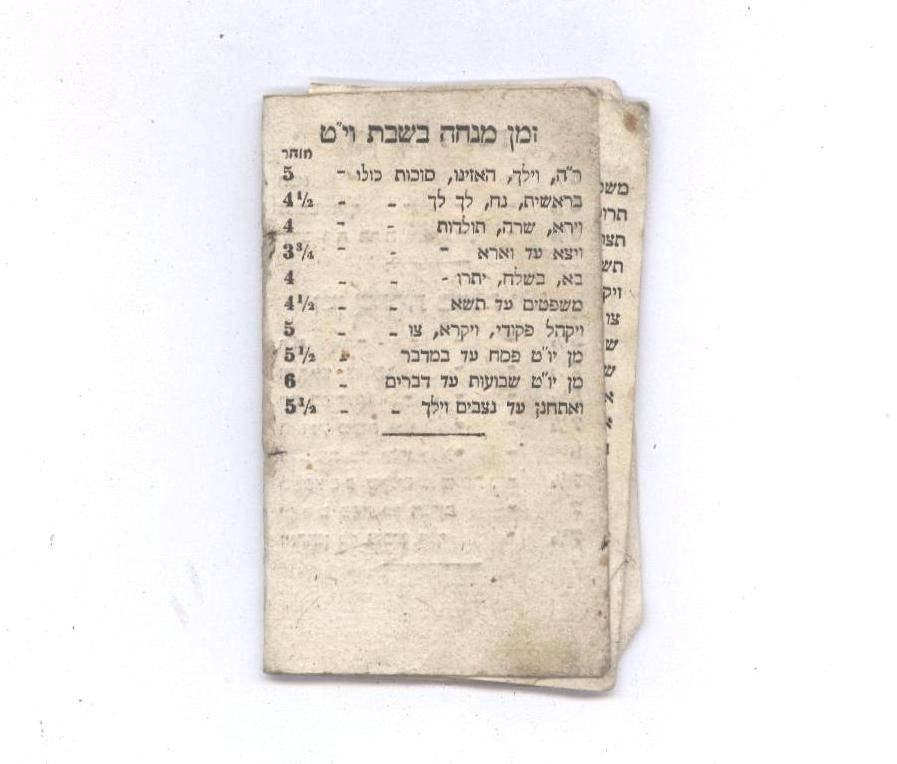 זמן מנחה בשבת וי"ט
מוהר
ר"ה, וילך, האזינו, סוכות כולו - 5
בראשית, נח, לך לך - - 4½
וירא, שרה, תולדות - - 4
ויצא עד וארא - - - 3¾
בא, בשלח, יתרו - - - 4
משפטים עד תשא - - 4½
ויקהל פקודי, ויקרא, צו - - 5
מן יו"ט פסח עד במדבר - 5½
מן יו"ט שבועות עד דברים - 6
ואתחנן עד נצבים וילך - - 5½